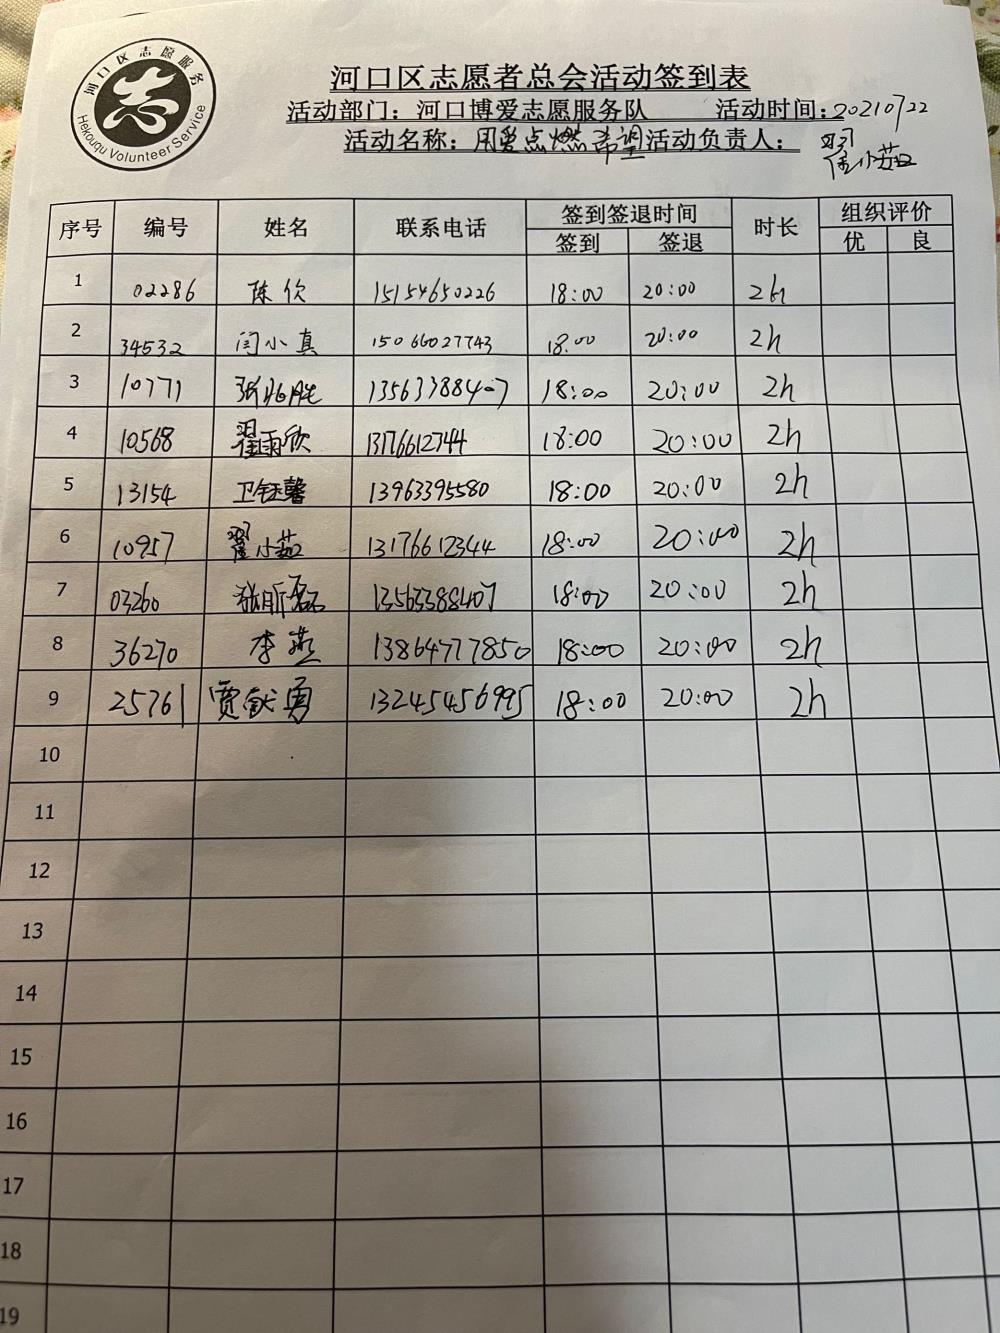 河口区志愿服务
Hekouqu Volunteer Service
河口区志愿者总会活动签到表
活动部门：河口博爱志愿服务队 活动时间：20210722
活动名称：用爱点燃希望 活动负责人： 翟小茹
序号 编号 姓名 联系电话 签到签退时间 时长 组织评价
签到 签退 优 良
1 02286 陈欣 15154650226 18:00 20:00 2h
2 34532 闫小真 15066027743 18:00 20:00 2h
3 10771 张兆胜 13563388407 18:00 20:00 2h
4 10568 翟雨欣 13176612344 18:00 20:00 2h
5 13154 卫钰馨 13963395580 18:00 20:00 2h
6 10957 翟小茹 13176612344 18:00 20:00 2h
7 03260 张昕磊 13563388407 18:00 20:00 2h
8 36270 李燕 13864777850 18:00 20:00 2h
9 25761 贾献勇 13245456995 18:00 20:00 2h
10
11
12
13
14
15
16
17
18
19